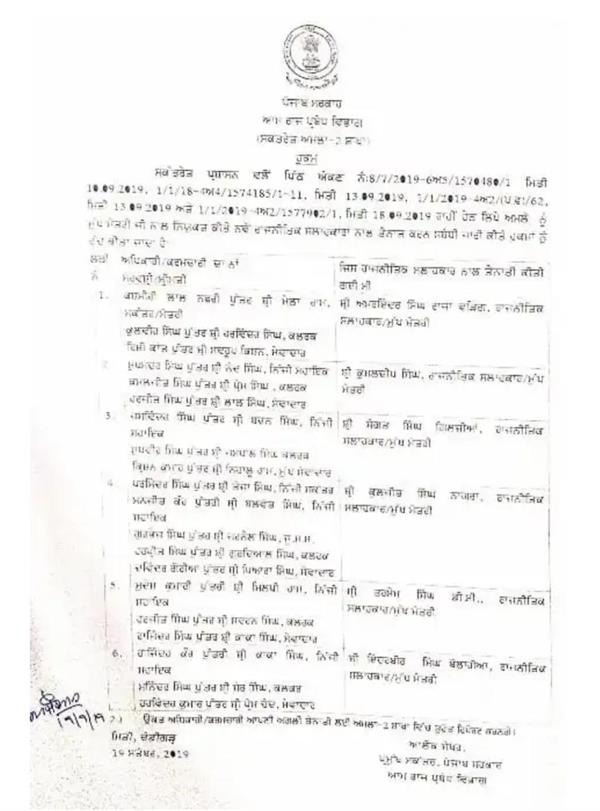 ਪੰਜਾਬ ਸਰਕਾਰ
ਆਮ ਰਾਜ ਪ੍ਰਬੰਧ ਵਿਭਾਗ
(ਸਕੱਤਰੇਤ ਅਮਲਾ-2 ਸ਼ਾਖਾ)
ਹੁਕਮ
ਸਕੱਤਰੇਤ ਪ੍ਰਸ਼ਾਸਨ ਵਲੋਂ ਪਿੱਠ ਅੰਕਣ ਨੰ:8/7/2019-6ਅ5/1570480/1 ਮਿਤੀ
10.09.2019, 1/1/18-4ਅ4/1574185/1-11, ਮਿਤੀ 13.09.2019, 1/1/2019-4ਅ2/(ਪ.ਫ)/62,
ਮਿਤੀ 13.09.2019 ਅਤੇ 1/1/2019-4ਅ2/1577902/1, ਮਿਤੀ 18.09.2019 ਰਾਹੀਂ ਹੇਠ ਲਿਖੇ ਅਮਲੇ ਨੂੰ
ਮੁੱਖ ਮੰਤਰੀ ਜੀ ਨਾਲ ਨਿਯੁਕਤ ਕੀਤੇ ਨਵੇਂ ਰਾਜਨੀਤਿਕ ਸਲਾਹਕਾਰਾਂ ਨਾਲ ਤੈਨਾਤ ਕਰਨ ਸਬੰਧੀ ਜਾਰੀ ਕੀਤੇ ਹੁਕਮਾਂ ਨੂੰ
ਰੱਦ ਕੀਤਾ ਜਾਂਦਾ ਹੈ:-
ਲੜੀ ਅਧਿਕਾਰੀ/ਕਰਮਚਾਰੀ ਦਾ ਨਾਂ ਜਿਸ ਰਾਜਨੀਤਿਕ ਸਲਾਹਕਾਰ ਨਾਲ ਤੈਨਾਤੀ ਕੀਤੀ
ਨੰ ਸਰਵਸ਼੍ਰੀ/ਸ਼੍ਰੀਮਤੀ ਗਈ ਸੀ
1. ਕਸ਼ਮੀਰੀ ਲਾਲ ਪੁੱਤਰ ਸ਼੍ਰੀ ਮੇਲਾ ਰਾਮ, ਸ਼੍ਰੀ ਅਮਰਿੰਦਰ ਸਿੰਘ ਰਾਜਾ ਵੜਿੰਗ, ਰਾਜਨੀਤਿਕ
ਸਕੱਤਰ/ਮੰਤਰੀ ਸਲਾਹਕਾਰ/ਮੁੱਖ ਮੰਤਰੀ
ਕੁਲਵੀਰ ਸਿੰਘ ਪੁੱਤਰ ਸ਼੍ਰੀ ਹਰਵਿੰਦਰ ਸਿੰਘ, ਕਲਰਕ
ਕਾਂਤ ਪੁੱਤਰ ਸ਼੍ਰੀ ਸਵਰੂਪ ਕਿਸ਼ਨ, ਸੇਵਾਦਾਰ
2. ਸੁਖਮਿੰਦਰ ਸਿੰਘ ਪੁੱਤਰ ਸ਼੍ਰੀ ਨੰਦ ਸਿੰਘ, ਨਿੱਜੀ ਸਹਾਇਕ ਸ਼੍ਰੀ ਕੁਸ਼ਲਦੀਪ ਸਿੰਘ, ਰਾਜਨੀਤਿਕ ਸਲਾਹਕਾਰ/ਮੁੱਖ
ਕਮਲਜੀਤ ਸਿੰਘ ਪੁੱਤਰ ਸ਼੍ਰੀ ਪ੍ਰੇਮ ਸਿੰਘ, ਕਲਰਕ ਮੰਤਰੀ
ਹਰਜੀਤ ਸਿੰਘ ਪੁੱਤਰ ਸ਼੍ਰੀ ਲਾਲ ਸਿੰਘ, ਸੇਵਾਦਾਰ
3. ਜਸਵਿੰਦਰ ਸਿੰਘ ਪੁੱਤਰ ਸ਼੍ਰੀ ਬਚਨ ਸਿੰਘ, ਨਿੱਜੀ ਸ਼੍ਰੀ ਸੰਗਤ ਸਿੰਘ ਗਿਲਜੀਆਂ, ਰਾਜਨੀਤਿਕ
ਸਹਾਇਕ ਸਲਾਹਕਾਰ/ਮੁੱਖ ਮੰਤਰੀ
ਸੁਖਵੀਰ ਸਿੰਘ ਪੁੱਤਰ ਸ਼੍ਰੀ ਸਿੰਘ ਕਲਰਕ
ਕ੍ਰਿਸ਼ਨ ਕੁਮਾਰ ਪੁੱਤਰ ਸ਼੍ਰੀ ਨਿਹਾਲੂ ਰਾਮ, ਮੁੱਖ ਸੇਵਾਦਾਰ
4. ਪਰਮਿੰਦਰ ਸਿੰਘ ਪੁੱਤਰ ਸ਼੍ਰੀ ਤੇਜਾ ਸਿੰਘ, ਨਿੱਜੀ ਸਕੱਤਰ ਸ਼੍ਰੀ ਕੁਲਜੀਤ ਸਿੰਘ ਨਾਗਰਾ, ਰਾਜਨੀਤਿਕ
ਮਨਜੀਤ ਕੌਰ ਪੁੱਤਰੀ ਸ਼੍ਰੀ ਬਲਵੰਤ ਸਿੰਘ, ਨਿੱਜੀ ਸਲਾਹਕਾਰ/ਮੁੱਖ ਮੰਤਰੀ
ਸਹਾਇਕ
ਸਿੰਘ ਪੁੱਤਰ ਸ਼੍ਰੀ ਜਰਨੈਲ ਸਿੰਘ,
ਹਰਪ੍ਰੀਤ ਸਿੰਘ ਪੁੱਤਰ ਸ਼੍ਰੀ ਗੁਰਦਿਆਲ ਸਿੰਘ, ਕਲਰਕ
ਦਵਿੰਦਰ ਪੁੱਤਰ ਸ਼੍ਰੀ ਪਿਆਰਾ ਸਿੰਘ, ਸੇਵਾਦਾਰ
5. ਸੁਦੇਸ਼ ਕੁਮਾਰੀ ਪੁੱਤਰੀ ਸ਼੍ਰੀ ਮਿਲਖੀ ਰਾਮ, ਨਿੱਜੀ ਸ਼੍ਰੀ ਤਰਸੇਮ ਸਿੰਘ ਡੀ.ਸੀ., ਰਾਜਨੀਤਿਕ
ਸਹਾਇਕ ਸਲਾਹਕਾਰ/ਮੁੱਖ ਮੰਤਰੀ
ਹਰਜੀਤ ਸਿੰਘ ਪੁੱਤਰ ਸ਼੍ਰੀ ਸਵਰਨ ਸਿੰਘ, ਕਲਰਕ
ਰਾਜਿੰਦਰ ਸਿੰਘ ਪੁੱਤਰ ਸ਼੍ਰੀ ਕਾਕਾ ਸਿੰਘ, ਸੇਵਾਦਾਰ
6. ਰਾਜਿੰਦਰ ਕੌਰ ਪੁੱਤਰੀ ਸ਼੍ਰੀ ਕਾਕਾ ਸਿੰਘ, ਨਿੱਜੀ ਸ਼੍ਰੀ ਇੰਦਰਬੀਰ ਸਿੰਘ ਬੋਲਾਰੀਆ, ਰਾਜਨੀਤਿਕ
ਸਹਾਇਕ ਸਲਾਹਕਾਰ/ਮੁੱਖ ਮੰਤਰੀ
ਮਨਿੰਦਰ ਸਿੰਘ ਪੁੱਤਰ ਸ਼੍ਰੀ ਸ਼ੇਰ ਸਿੰਘ, ਕਲਰਕ
ਹਰਵਿੰਦਰ ਕੁਮਾਰ ਪੁੱਤਰ ਸ਼੍ਰੀ ਪ੍ਰੇਮ ਚੰਦ, ਸੇਵਾਦਾਰ
2.) ਉਕਤ ਅਧਿਕਾਰੀ/ਕਰਮਚਾਰੀ ਆਪਣੀ ਅਗਲੀ ਤੈਨਾਤੀ ਲਈ ਅਮਲਾ-2 ਸ਼ਾਖਾ ਵਿੱਚ ਤੁਰੰਤ ਰਿਪੋਰਟ ਕਰਨਗੇ।
ਮਿਤੀ, ਚੰਡੀਗੜ੍ਹ ਆਲੋਕ ਸ਼ੇਖਰ,
19 ਸਤੰਬਰ, 2019 ਪ੍ਰਮੁੱਖ ਸਕੱਤਰ, ਪੰਜਾਬ ਸਰਕਾਰ
ਆਮ ਰਾਜ ਪ੍ਰਬੰਧ ਵਿਭਾਗ
19/9/19